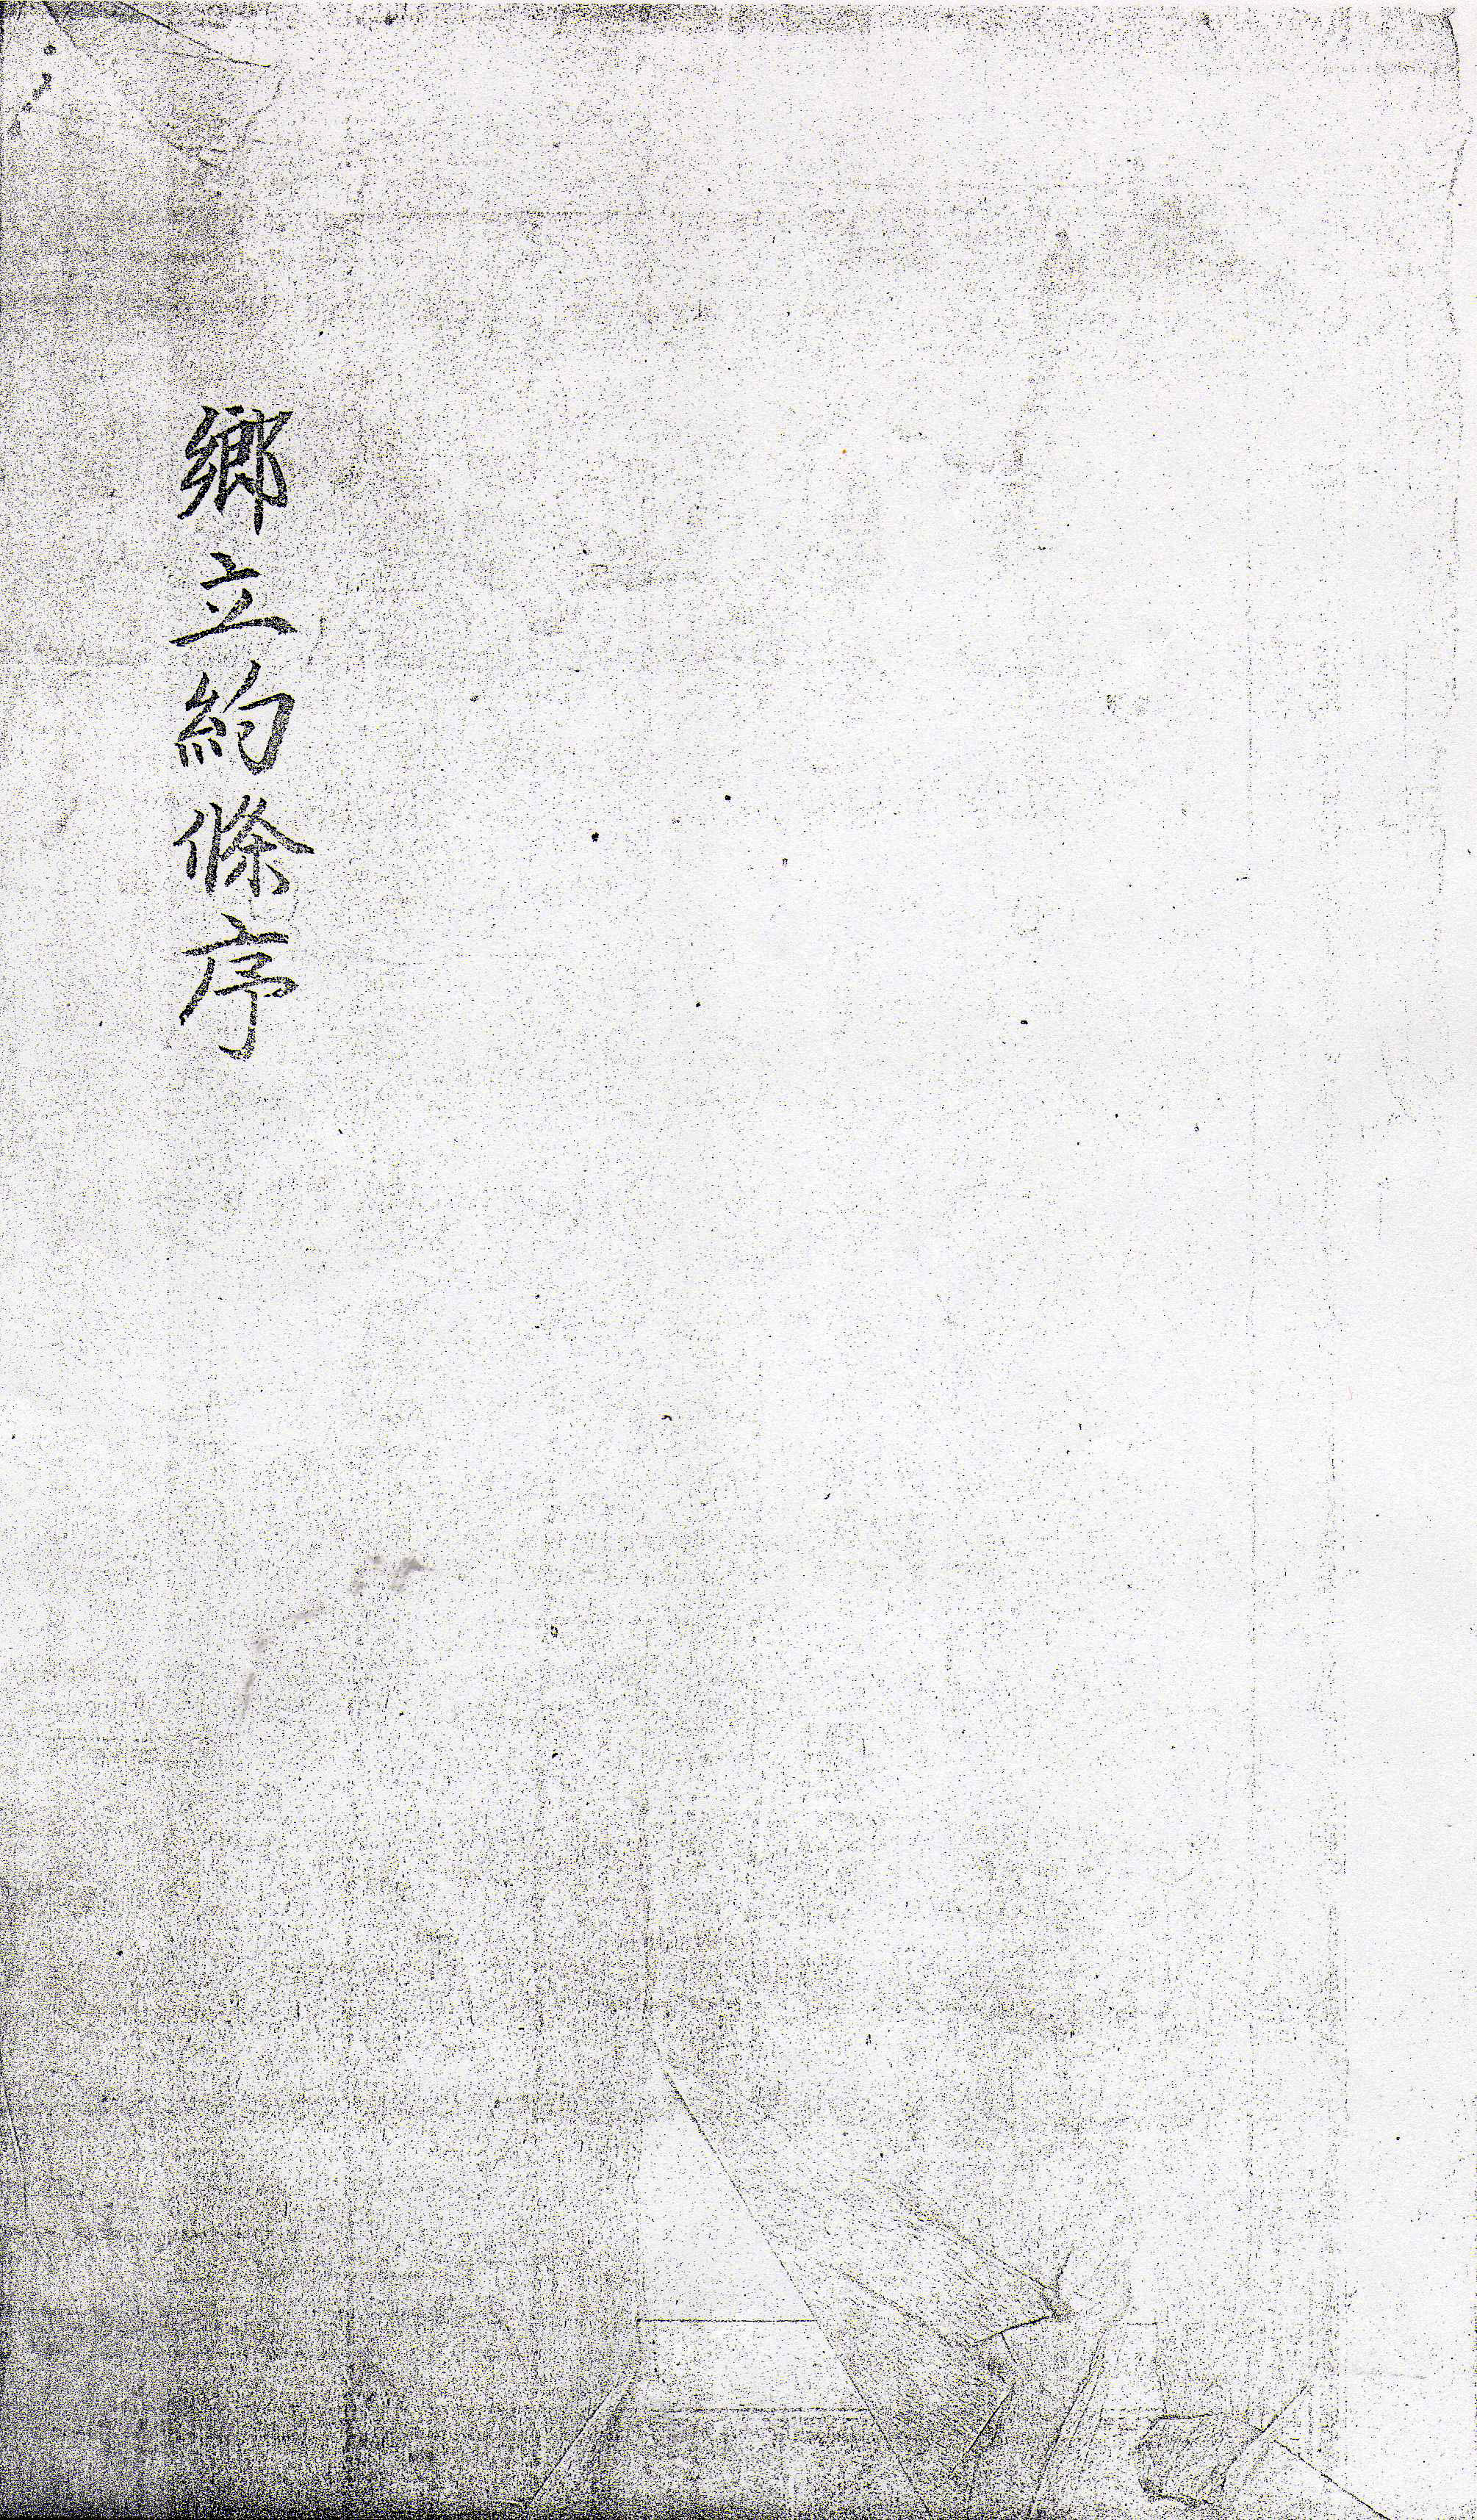 鄉立約條序